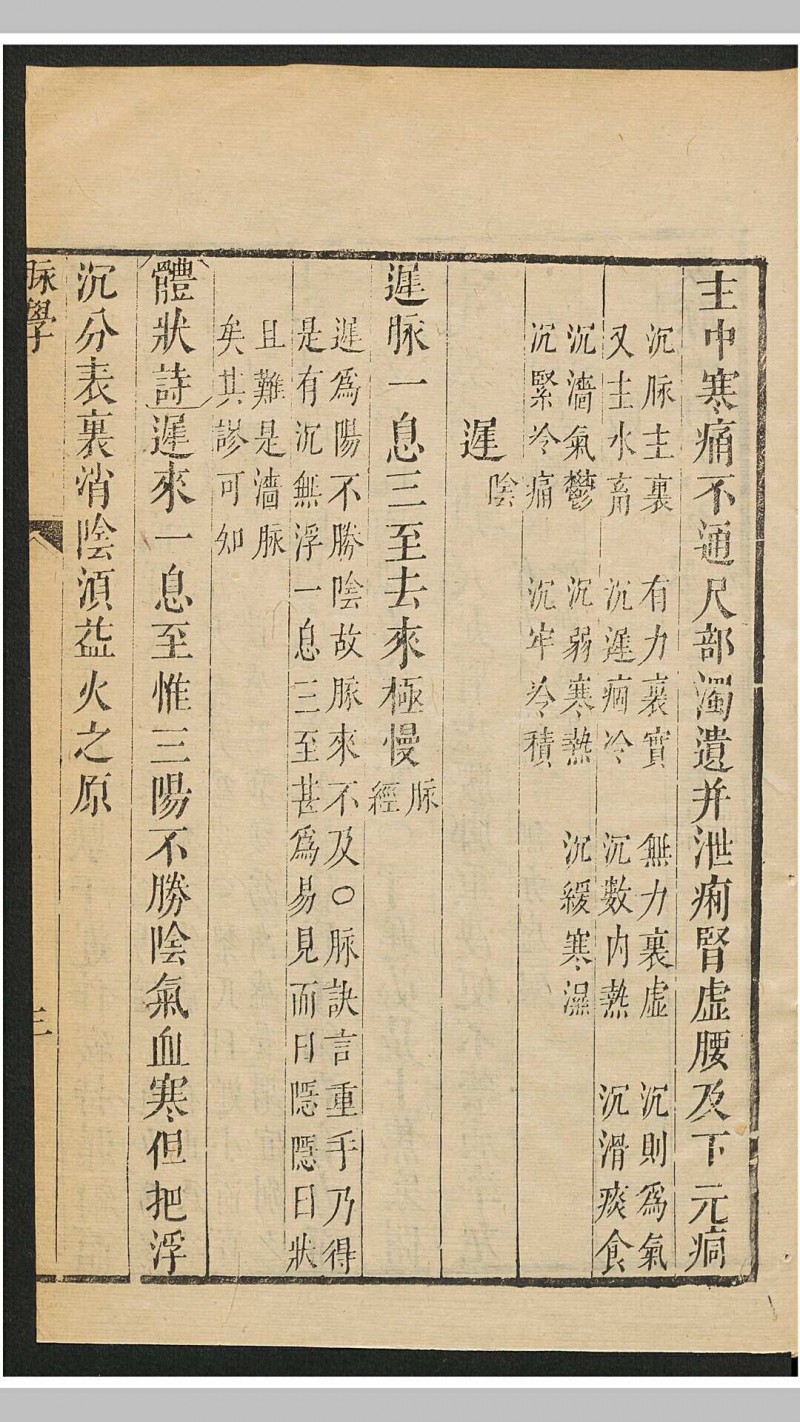 主中寒痛不通尺部濁遺并泄痢腎虛腰及下元痌
沉脉主裏　有力裏實　無力裏虛　沉則爲氣
又主水畜　沉遲痼冷　沉數内熱　沉滑痰食
沉濇氣鬱　沉弱寒熱　沉緩寒濕
沉緊冷痛　沉牢冷積
遲陰
遲脉一息三至去來極慢脉經
遲爲陽不勝陰故脉來不及○脉訣言重手乃得
是有沉無浮一息三至甚爲易見而曰隱隱曰狀
且難是濇脉
矣其謬可知
體狀詩遲來一息至惟三陽不勝陰氣血寒但把浮
沉分表裏消陰湏益火之原
脉學
三